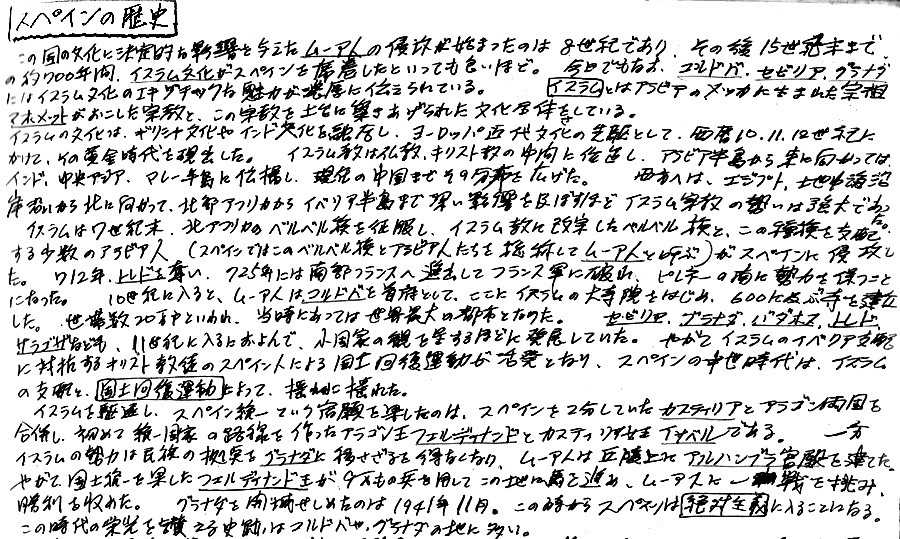 スペインの歴史
この国の文化に決定的な影響を与えたムーア人の侵攻が始まったのは8世紀であり、その後15世紀末まで
の約700年間、イスラム文化がスペインを席巻したといっても良いほど。 今日でもなお、コルドバ、セビリア、グラナダ
にはイスラム文化のエキゾチックな魅力が濃厚に伝えられている。 イスラムとはアラビアのメッカに生まれた宗祖
マホメットがおこした宗教と、この宗教を土台に築きあげられた文化全体をしている。
イスラムの文化は、ギリシャ文化やインド文化を融合し、ヨーロッパ近代文化の先駆として、西暦10、11、12世紀に
かけて、その黄金時代を現出した。 イスラム教は仏教、キリスト教の中間に位置し、アラビア半島から東に向かっては、
インド、中央アジア、マレー半島に伝播し、現在の中国までその分布を広げた。 西方へは、エジプト、地中海沿
岸沿いから北に向かって、北部アフリカからイベリア半島まで深い影響を及ぼすほどイスラム宗教の勢いは強大であった。
イスラムは7世紀末、北アフリカのベルベル族を征服し、イスラム教に改宗したベルベル族と、この種族を支配
する少数のアラビア人 (スペインではこのベルベル族とアラビア人たちを総称してムーア人と呼ぶ)がスペインに侵攻し
た。 712年、トレドを奪い、725年には南部フランスへ進出してフランス軍に破れ、ピレネーの南に勢力を保つこと
になった。 10世紀に入ると、ムーア人はコルドバを首府として、ここにイスラムの大寺院をはじめ、600に及ぶ寺を建立
した。 世帯数20万戸といわれ、当時にあっては世界最大の都市となった。 セビリア、グラナダ、バダホス、トレド、
サラゴサなども、11世紀に入るにおよんで、小国家の観を呈するほどに発展していた。 やがてイスラムのイベリア支配
に対抗するキリスト教徒のスペイン人による国土回復運動が活発となり、スペインの中世時代は、イスラム
の支配と、国土回復運動によって、揺れに揺れた。
イスラムを駆逐し、スペイン統一という宿願を果したのは、スペインを2分していたカスティリアとアラゴン両国を
合併し、初めて統一国家の路線を作ったアラゴン王フェルディナンドとカスティリア女王イサベルである。 一方
イスラムの勢力は民族の拠点をグラナダに移さざるを得なくなり、ムーア人は丘陵上にアルハンブラ宮殿を建てた。
やがて国土統一を果したフェルディナンド王が9万もの兵を用してこの地に馬を進め、ムーア人に一戦を挑み、
勝利を収めた。 グラナダを開城せしめたのは1941年11月。この時からスペインは絶対主義に入ることになる。
この時代の栄光を語る史跡はコルドバや、グラナダの地に多い。